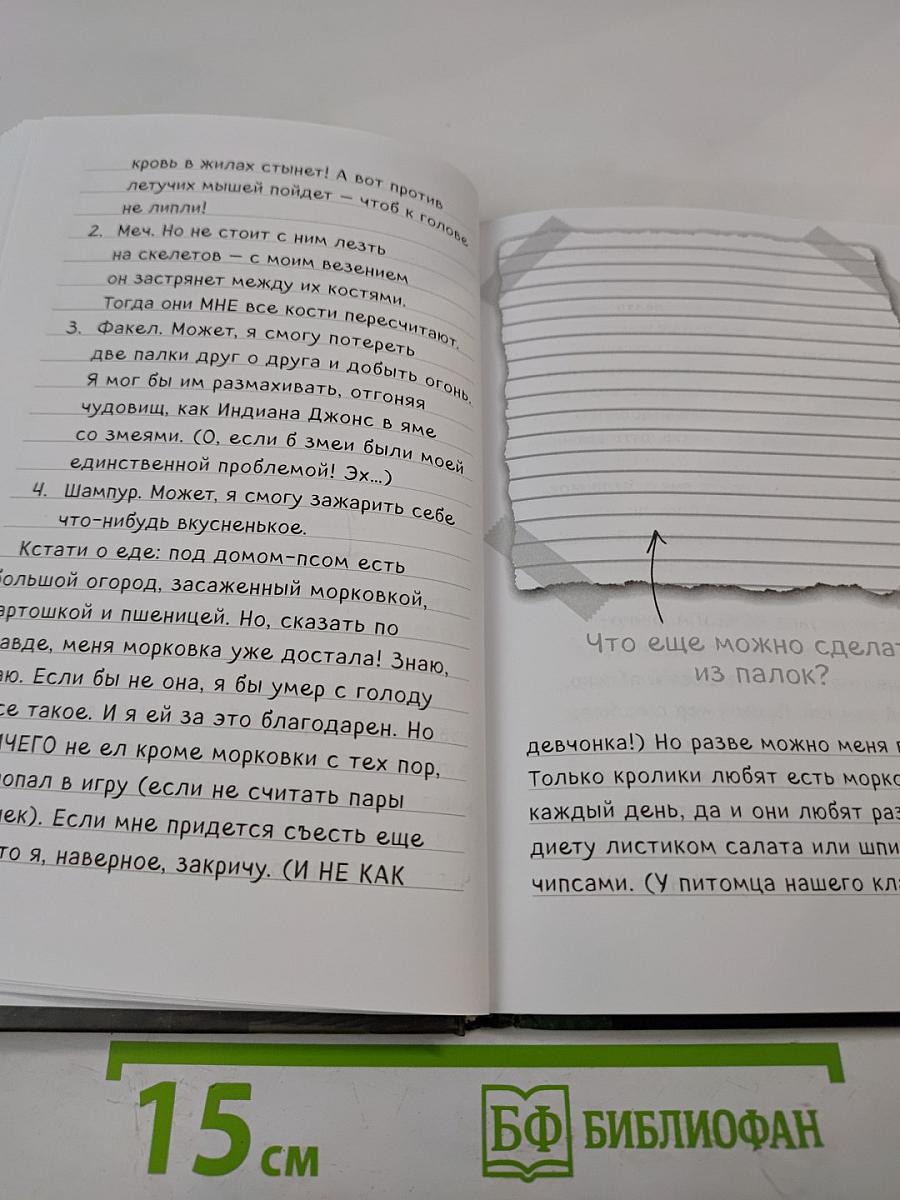 кровь в жилах стынет! А вот против
летучих мышей пойдет — чтоб к голове
не липли!
2. Меч. Но не стоит с ним лезть
на скелетов — с моим везением
он застрянет между их костями.
Тогда они МНЕ все кости пересчитают.
3. Факел. Может, я смогу потереть
две палки друг о друга и добыть огонь.
Я мог бы им размахивать, отгоняя
чудовищ, как Индиана Джонс в яме
со змеями. (О, если б змеи были моей
единственной проблемой! Эх...)
4. Шампур. Может, я смогу зажарить себе
что-нибудь вкусненькое.
Кстати о еде: под домом-псом есть
большой огород, засаженный морковкой,
артошкой и пшеницей. Но, сказать по
авде, меня морковка уже достала! Знаю,
аю. Если бы не она, я бы умер с голоду
се такое. И я ей за это благодарен. Но
ИЧЕГО не ел кроме морковки с тех пор,
опал в игру (если не считать пары
чек). Если мне придется съесть еще
то я, наверное, закричу. (И НЕ КАК
Что еще можно сделат
из палок?
девчонка!) Но разве можно меня
Только кролики любят есть морко
каждый день, да и они любят раз
диету листиком салата или шпи
чипсами. (У питомца нашего кла
15 см
БФ БИБЛИОФАН